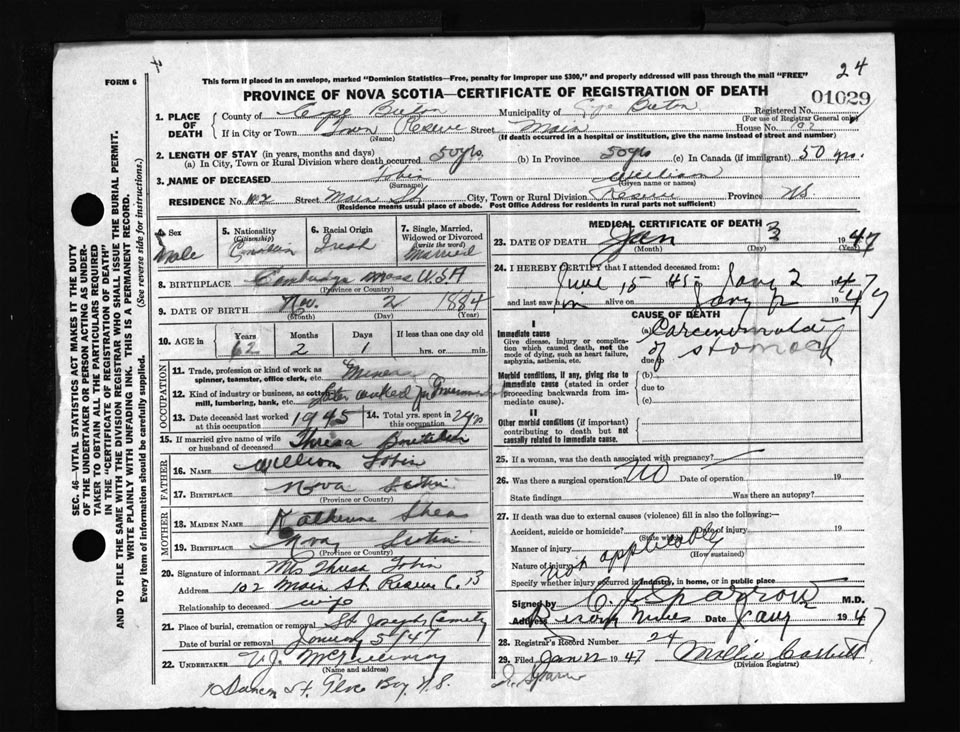 24
FORM 6
This form if placed in an envelope, marked "Dominion Statistics—Free, penalty for improper use $300," and properly addressed will pass through the mail "FREE"
PROVINCE OF NOVA SCOTIA—CERTIFICATE OF REGISTRATION OF DEATH
01029
Registered No.
(For use of Registrar General only)
1. PLACE OF DEATH
County of Cape Breton Municipality of Cape Breton
If in City or Town Reserve Street Main House No. 102
(Name) (If death occurred in a hospital or institution, give the name instead of street and number)
2. LENGTH OF STAY (in years, months and days)
(a) In City, Town or Rural Division where death occurred 50 yrs. (b) In Province 50 yrs (c) In Canada (if immigrant) 50 yrs.
3. NAME OF DECEASED Tobin William
(Surname) (Given name or names)
RESIDENCE No. 102 Street Main St. City, Town or Rural Division Reserve Province N.S.
(Residence means usual place of abode. Post Office Address for residents in rural parts not sufficient)
4. Sex Male
5. Nationality (Citizenship) Canadian
6. Racial Origin Irish
7. Single, Married, Widowed or Divorced (write the word) Married
8. BIRTHPLACE Cambridge Mass USA
(Province or Country)
9. DATE OF BIRTH Nov. 2 1884
(Month) (Day) (Year)
10. AGE in Years 62 Months 2 Days 1 If less than one day hrs. or min.
OCCUPATION
11. Trade, profession or kind of work as spinner, teamster, office clerk, etc. Miner
12. Kind of industry or business, as cotton mill, lumbering, bank, etc. later worked for Government
13. Date deceased last worked at this occupation 1945
14. Total yrs. spent in this occupation
15. If married give name of wife or husband of deceased Thresa
FATHER
16. NAME William Tobin
17. BIRTHPLACE Nova Scotia
(Province or Country)
MOTHER
18. MAIDEN NAME Katherine Shea
19. BIRTHPLACE Nova Scotia
(Province or Country)
20. Signature of informant Mrs Thresa Tobin
Address 102 Main St. Reserve C.B
Relationship to deceased wife
21. Place of burial, cremation or removal St Josephs Cemetry
Date of burial or removal January 5/47
22. UNDERTAKER V.J. McGillivray
(Name and address)
St. Glace Bay N.S.
MEDICAL CERTIFICATE OF DEATH
23. DATE OF DEATH Jan 3 1947
(Month) (Day)
24. I HEREBY CERTIFY that I attended deceased from:
June 15 1945 to Jany 2 1947
and last saw him alive on Jany 2 1947
CAUSE OF DEATH
I
Immediate cause
Give disease, injury or complication which caused death, not the mode of dying, such as heart failure, asphyxia, asthenia, etc.
(a) Carcinomata of stomach
due to
Morbid conditions, if any, giving rise to immediate cause (stated in order proceeding backwards from immediate cause).
(b)
due to
(c)
II
Other morbid conditions (if important) contributing to death but not causally related to immediate cause.
25. If a woman, was the death associated with pregnancy?
26. Was there a surgical operation? No Date of operation 19
State findings Was there an autopsy?
27. If death was due to external causes (violence) fill in also the following:—
Accident, suicide or homicide? Date of injury 19
(State which)
Manner of injury Not applicable
(How sustained)
Nature of injury
Specify whether injury occurred in industry, in home, or in public place
Signed by C. J. Sparrow M.D.
Address Date Jany 1947
28. Registrar's Record Number 24
29. Filed Jan 1947 Mollie Corbett
(Division Registrar)
SEC. 46—VITAL STATISTICS ACT MAKES IT THE DUTY
OF THE UNDERTAKER OR PERSON ACTING AS UNDER-
TAKER TO OBTAIN ALL THE PARTICULARS REQUIRED
IN THE "CERTIFICATE OF REGISTRATION OF DEATH"
AND TO FILE THE SAME WITH THE DIVISION REGISTRAR WHO SHALL ISSUE THE BURIAL PERMIT.
WRITE PLAINLY WITH UNFADING INK. THIS IS A PERMANENT RECORD.
Every item of information should be carefully supplied. (See reverse side for instructions.)